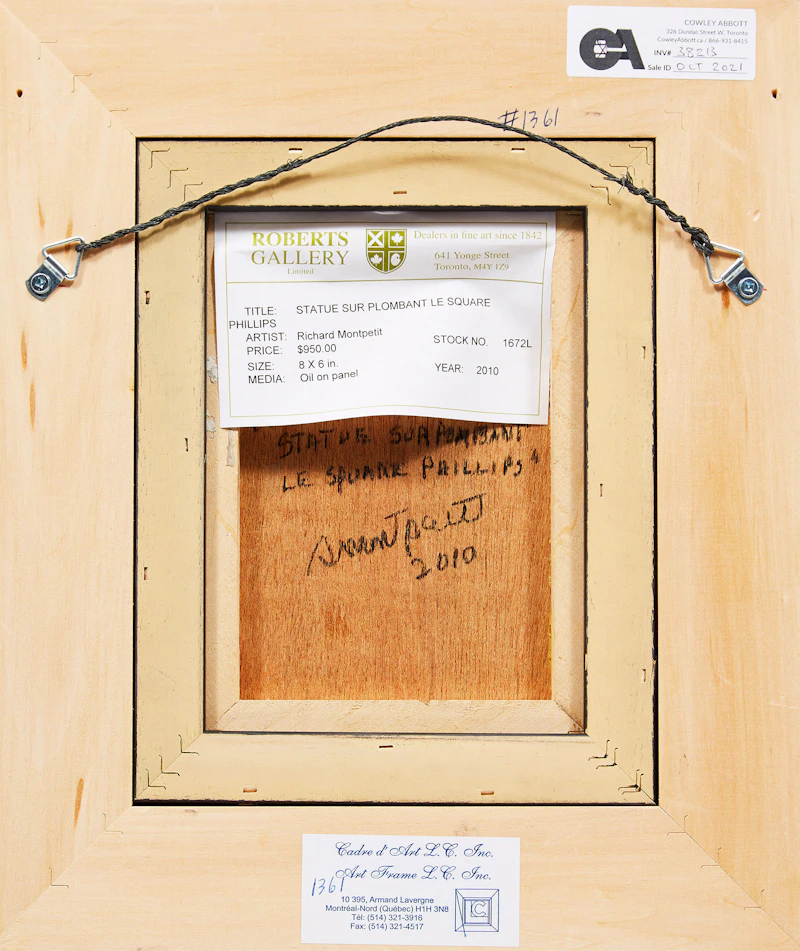 COWLEY ABBOTT
326 Dundas Street W, Toronto
CowleyAbbott.ca / 866-931-8415
INV# 38213
Sale ID OCT 2021
#1361
ROBERTS
GALLERY
Limited
Dealers in fine art since 1842
641 Yonge Street
Toronto, M4Y 1Z9
TITLE: STATUE SUR PLOMBANT LE SQUARE
PHILLIPS
ARTIST: Richard Montpetit
PRICE: $950.00
STOCK NO. 1672L
SIZE: 8 X 6 in.
YEAR: 2010
MEDIA: Oil on panel
STATUE SURPLOMBANT
LE SQUARE PHILLIPS"
2010
Cadre d'Art L.C. Inc.
Art Frame L.C. Inc.
1361
10 395, Armand Lavergne
Montréal-Nord (Québec) H1H 3N8
Tél: (514) 321-3916
Fax: (514) 321-4517